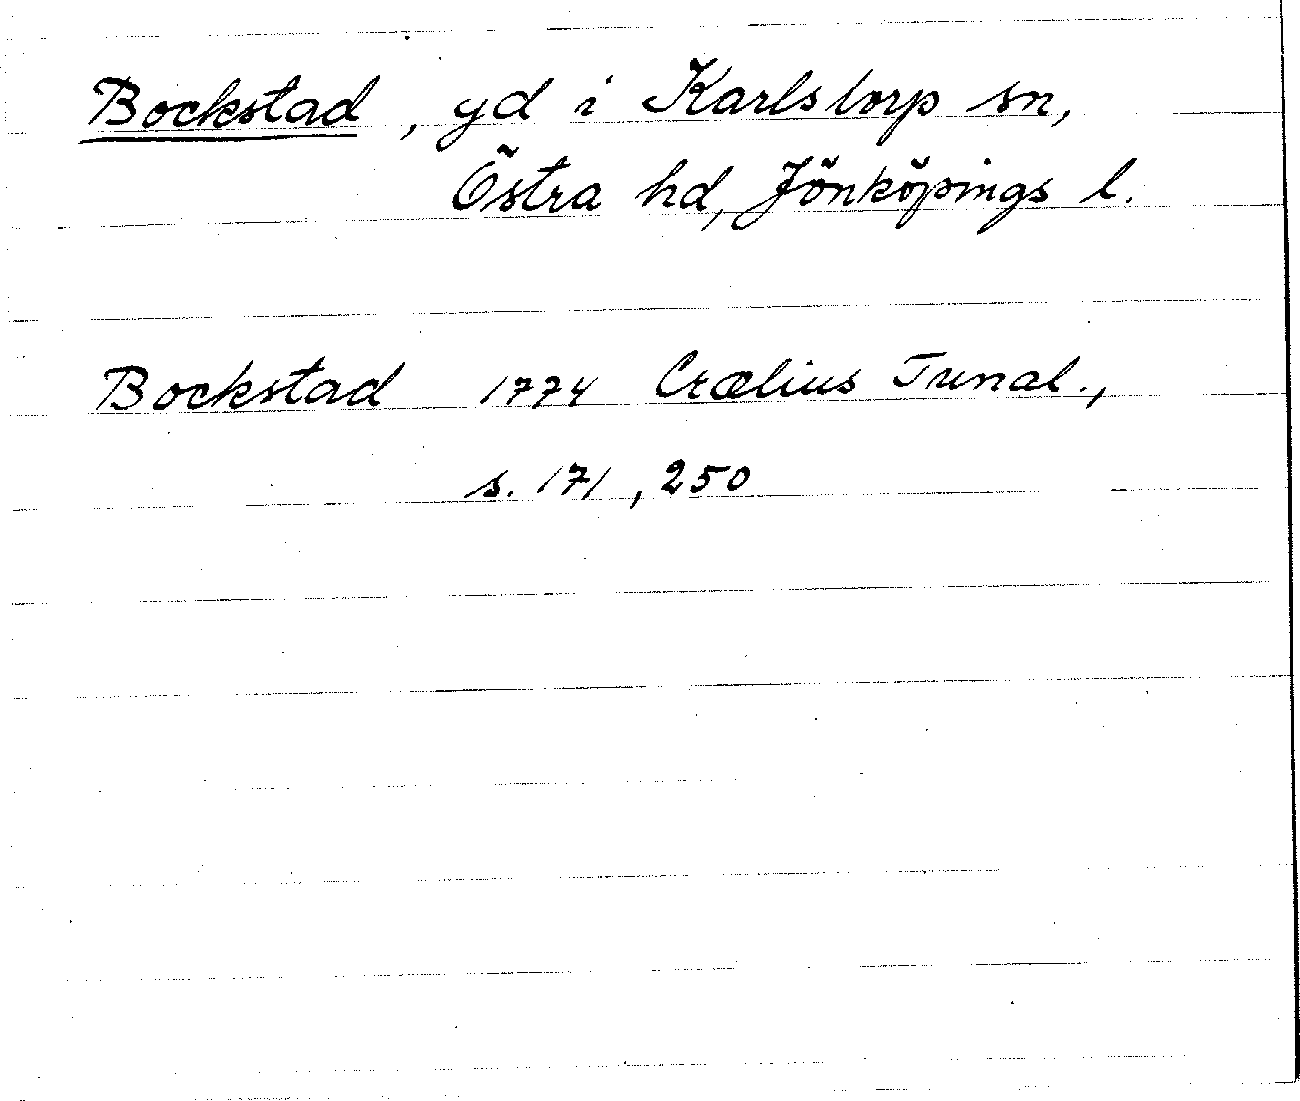 Bockstad, gd i Karlstorp sn,
Östra hd, Jönköpings l.
Bockstad 1774 Crælius Tunal.,
s. 171, 250